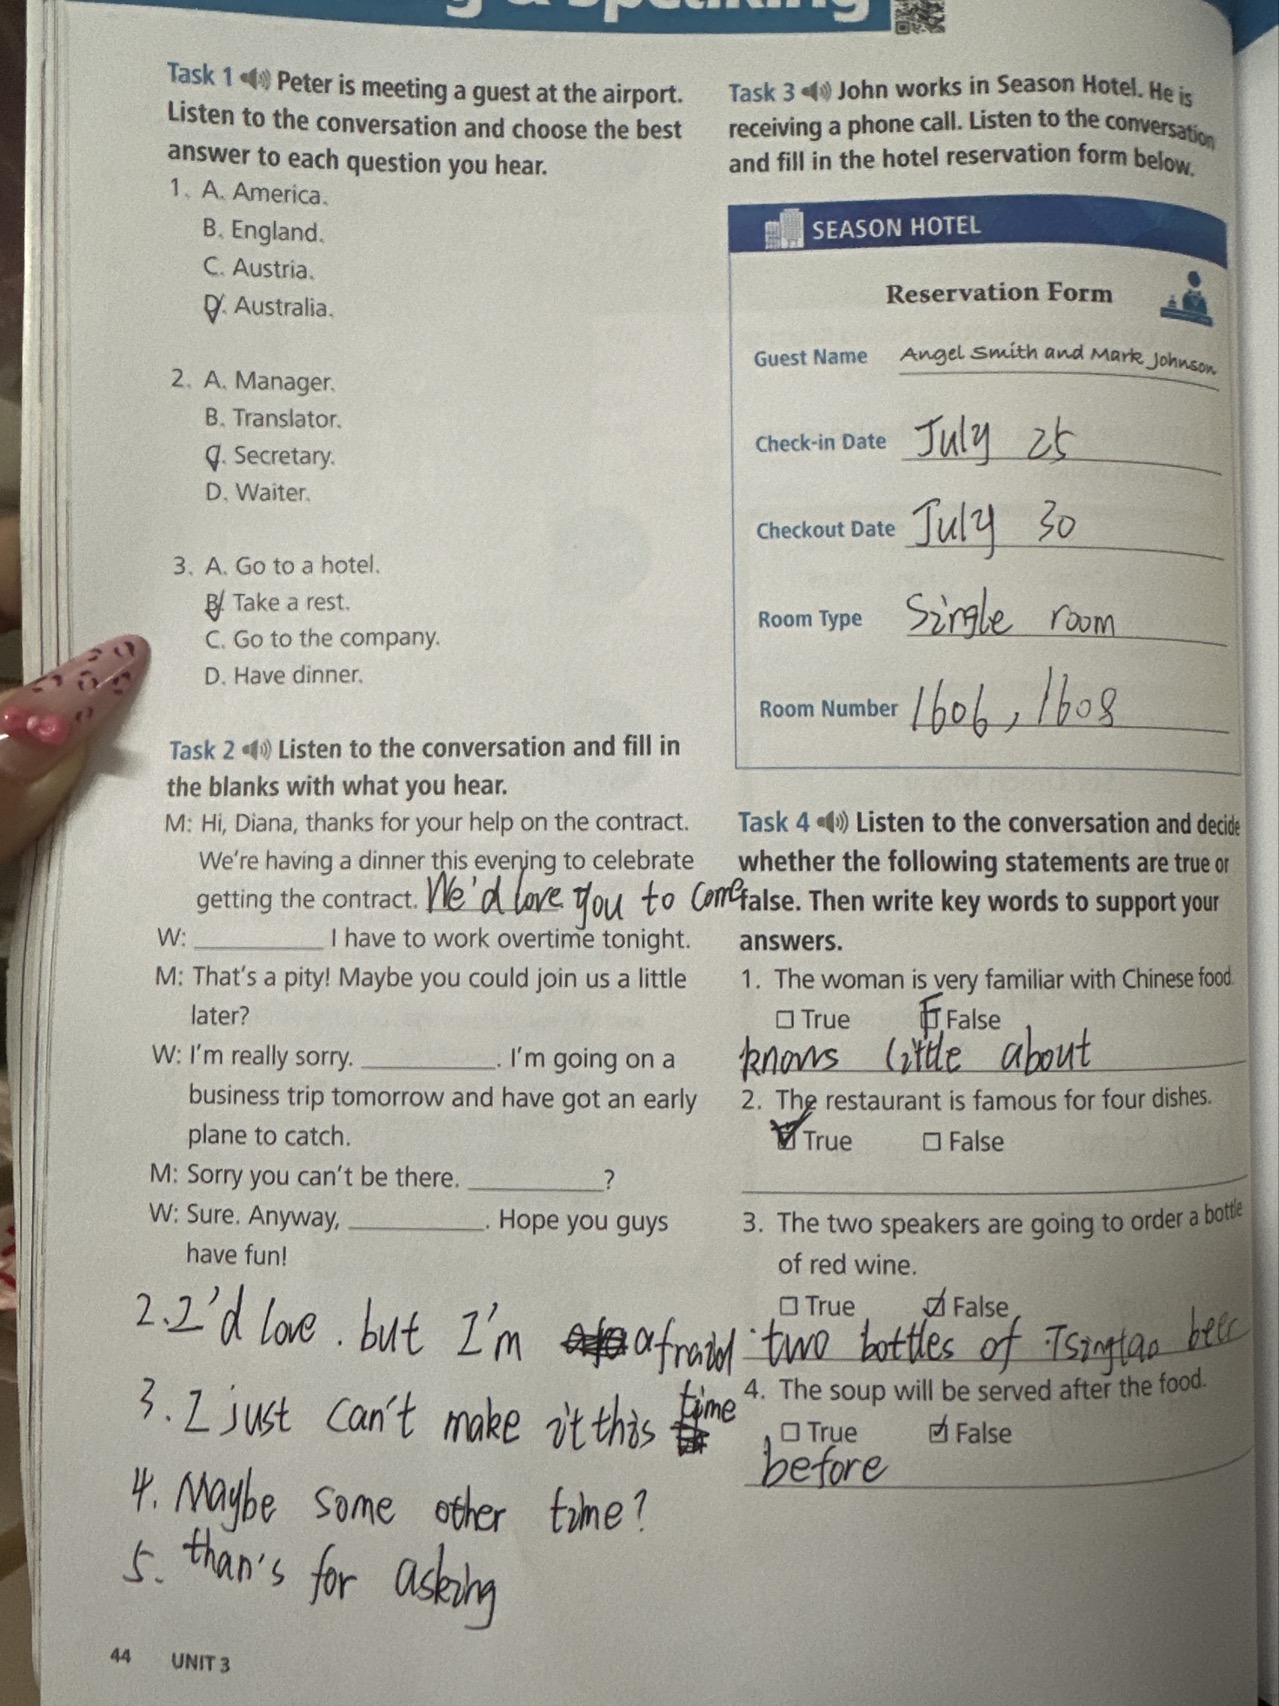 g & Speaking
Task 1 Peter is meeting a guest at the airport.
Listen to the conversation and choose the best
answer to each question you hear.
1. A. America.
B. England.
C. Austria.
D. Australia.
2. A. Manager.
B. Translator.
C. Secretary.
D. Waiter.
3. A. Go to a hotel.
B. Take a rest.
C. Go to the company.
D. Have dinner.
Task 2 Listen to the conversation and fill in
the blanks with what you hear.
M: Hi, Diana, thanks for your help on the contract.
We're having a dinner this evening to celebrate
getting the contract. We'd love you to come
W: __________ I have to work overtime tonight.
M: That's a pity! Maybe you could join us a little
later?
W: I'm really sorry. __________. I'm going on a
business trip tomorrow and have got an early
plane to catch.
M: Sorry you can't be there. __________?
W: Sure. Anyway, __________. Hope you guys
have fun!
2. I'd love. but I'm afraid
3. I just can't make it this time
4. Maybe some other time?
5. than's for asking
44 UNIT 3
Task 3 John works in Season Hotel. He is
receiving a phone call. Listen to the conversation
and fill in the hotel reservation form below.
SEASON HOTEL
Reservation Form
Guest Name Angel Smith and Mark Johnson
Check-in Date July 25
Checkout Date July 30
Room Type Single room
Room Number 1606, 1608
Task 4 Listen to the conversation and decide
whether the following statements are true or
false. Then write key words to support your
answers.
1. The woman is very familiar with Chinese food.
True F False
knows little about
2. The restaurant is famous for four dishes.
True False
3. The two speakers are going to order a bottle
of red wine.
True False
two bottles of Tsingtao beer
4. The soup will be served after the food.
True False
before